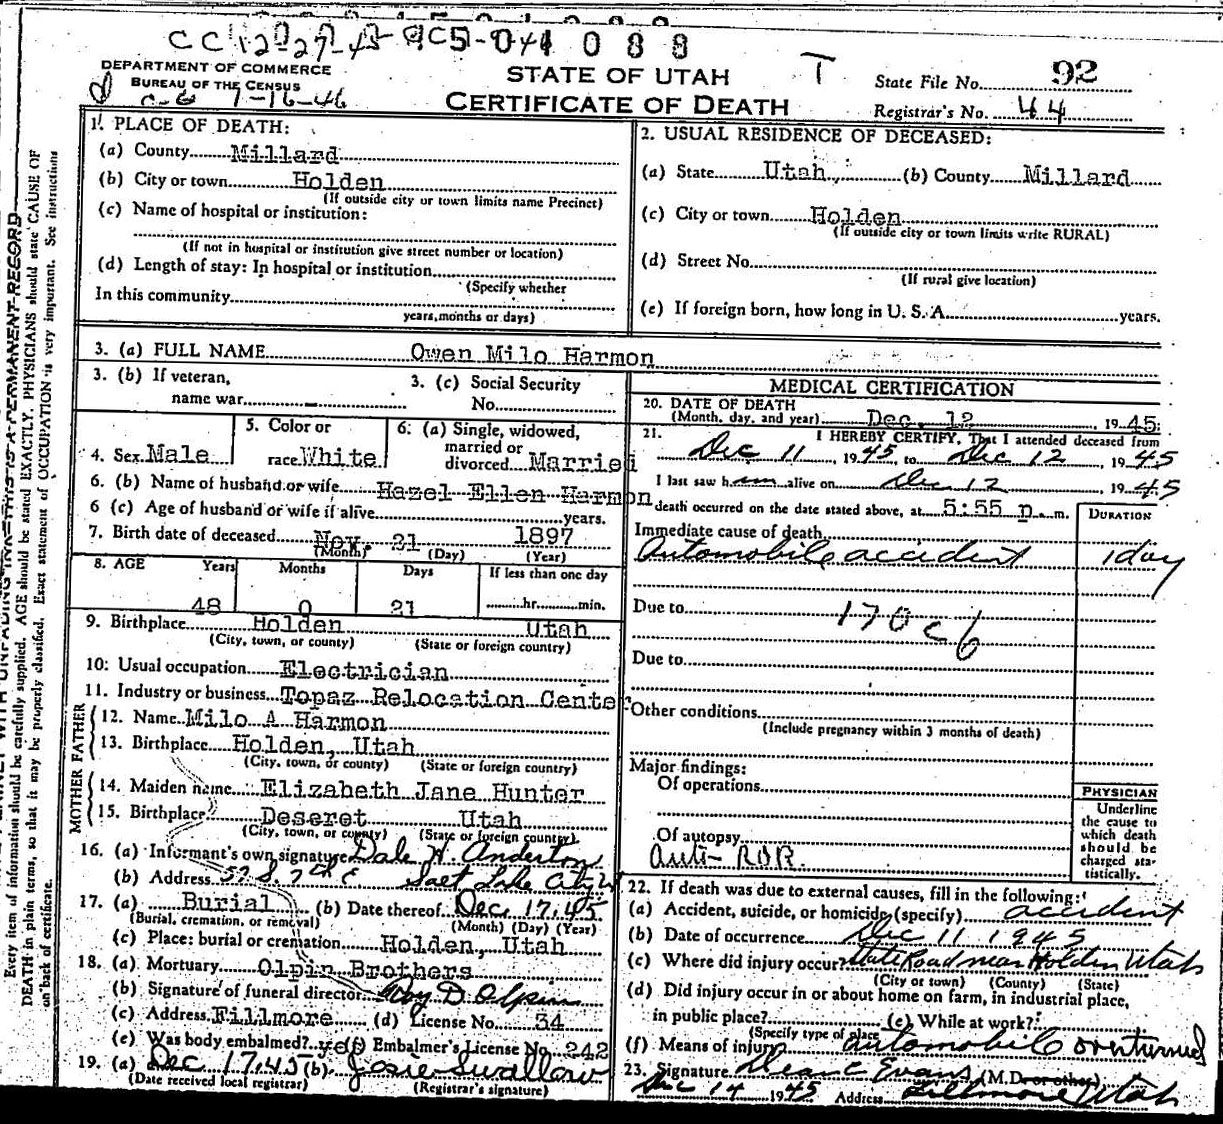 CC 12-27-45 RC5-041 088
DEPARTMENT OF COMMERCE
BUREAU OF THE CENSUS
C-6 1-16-46
STATE OF UTAH
CERTIFICATE OF DEATH
T
State File No. 92
Registrar's No. 44
1. PLACE OF DEATH:
(a) County Millard
(b) City or town Holden
(If outside city or town limits name Precinct)
(c) Name of hospital or institution:
(If not in hospital or institution give street number or location)
(d) Length of stay: In hospital or institution
(Specify whether
In this community
years, months or days)
2. USUAL RESIDENCE OF DECEASED:
(a) State Utah, (b) County Millard
(c) City or town Holden
(If outside city or town limits write RURAL)
(d) Street No.
(If rural give location)
(e) If foreign born, how long in U. S. A. years.
3. (a) FULL NAME Owen Milo Harmon
3. (b) If veteran,
name war -
3. (c) Social Security
No.
4. Sex Male
5. Color or
race White
6. (a) Single, widowed,
married or
divorced Married
6. (b) Name of husband or wife Hazel Ellen Harmon
6 (c) Age of husband or wife if alive years.
7. Birth date of deceased Nov. 21 1897
(Month) (Day) (Year)
8. AGE Years Months Days If less than one day
48 0 21 hr. min.
9. Birthplace Holden Utah
(City, town, or county) (State or foreign country)
10. Usual occupation Electrician
11. Industry or business Topaz Relocation Center
FATHER
12. Name Milo A Harmon
13. Birthplace Holden, Utah
(City, town, or county) (State or foreign country)
MOTHER
14. Maiden name Elizabeth Jane Hunter
15. Birthplace Deseret Utah
(City, town, or county) (State or foreign country)
16. (a) Informant's own signature Dale H. Anderton
(b) Address 57 S. 7th E. Salt Lake City U
17. (a) Burial (b) Date thereof Dec. 17, 45
(Burial, cremation, or removal) (Month) (Day) (Year)
(c) Place: burial or cremation Holden, Utah
18. (a) Mortuary Olpin Brothers
(b) Signature of funeral director Roy D. Olpin
(c) Address Fillmore (d) License No. 34
(e) Was body embalmed? yes (f) Embalmer's License No. 242
19. (a) Dec 17, 45 (b) Josie Swallow
(Date received local registrar) (Registrar's signature)
MEDICAL CERTIFICATION
20. DATE OF DEATH
(Month, day, and year) Dec. 12, 1945
21. I HEREBY CERTIFY, That I attended deceased from
Dec 11, 1945, to Dec 12, 1945
I last saw him alive on Dec 12, 1945
death occurred on the date stated above, at 5:55 p. m.
DURATION
Immediate cause of death
Automobile accident 1 day
Due to 170 c 6
Due to
Other conditions
(Include pregnancy within 3 months of death)
Major findings:
Of operations
Of autopsy
Auto-
PHYSICIAN
Underline
the cause to
which death
should be
charged sta-
tistically.
22. If death was due to external causes, fill in the following:
(a) Accident, suicide, or homicide (specify) accident
(b) Date of occurrence Dec 11 1945
(c) Where did injury occur? State Road near Holden Utah
(City or town) (County) (State)
(d) Did injury occur in or about home on farm, in industrial place,
in public place? (e) While at work?
(Specify type of place)
(f) Means of injury Automobile overturned
23. Signature Dean C Evans (M.D. or other)
Dec 14 1945 Address Fillmore Utah
Every item of information should be carefully supplied. AGE should be stated EXACTLY. PHYSICIANS should state CAUSE OF
DEATH in plain terms, so that it may be properly classified. Exact statement of OCCUPATION is very important. See instructions
on back of certificate.